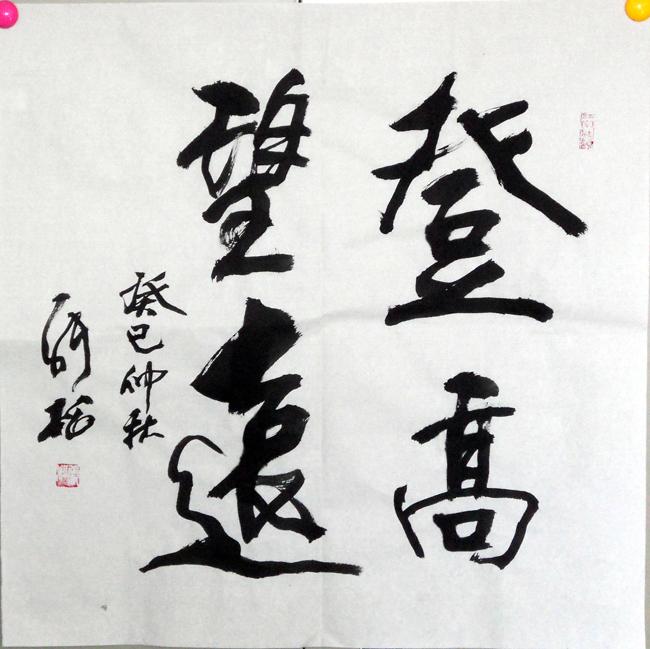 登高
望遠
癸巳仲秋